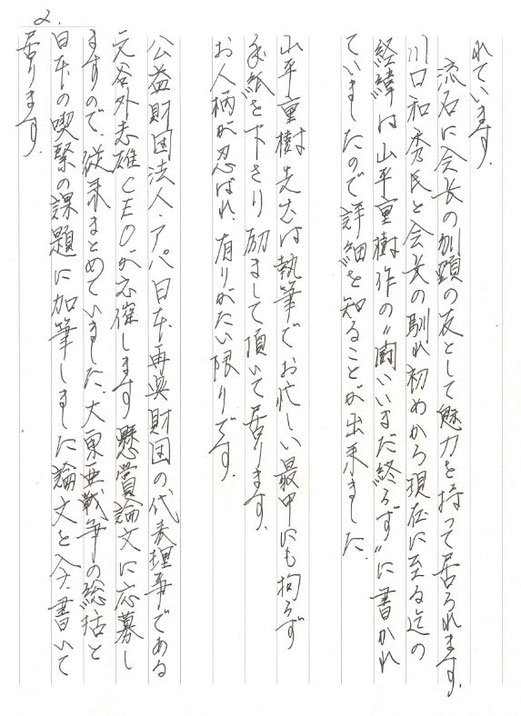 れています。
流石に会長の刎頸の友として魅力を持って居られます。
川口和秀氏と会長の馴れ初めから現在に至る迄の
経緯は山平重樹作の“闘いいまだ終らず”に書かれ
ていましたので詳細を知ることが出来ました。
山平重樹先生は執筆でお忙しい最中にも拘らず
手紙を下さり励まして頂いて居ります。
お人柄が忍ばれ、有りがたい限りです。
公益財団法人・アパ日本再興財団の代表理事である
元谷外志雄CEOが応催します懸賞論文に応募し
ますので、従来まとめていました、大東亜戦争の総括と
日本の喫緊の課題に加筆しました論文を今、書いて
居ります。
2.